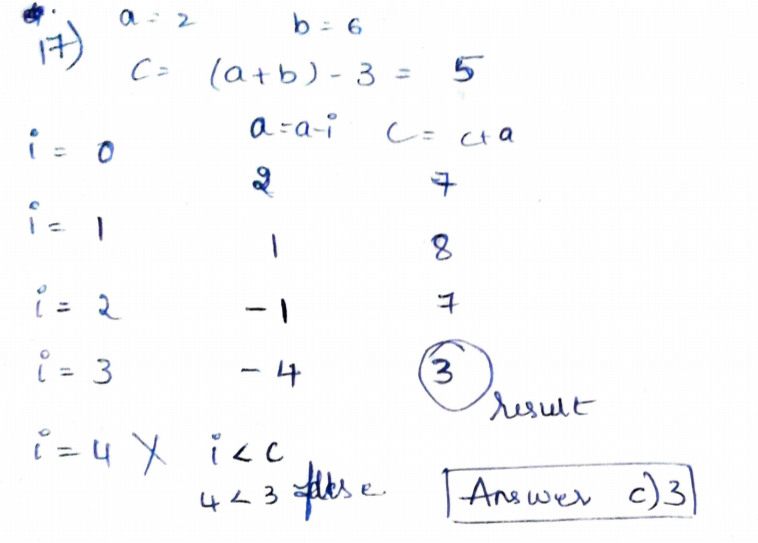 a = 2 b = 6
17)
C = (a+b) - 3 = 5
i = 0 a = a-i C = c+a
2 7
i = 1
1 8
i = 2 -1 7
i = 3 -4 3
result
i = 4 X i < c
4 < 3 false
Answer c) 3